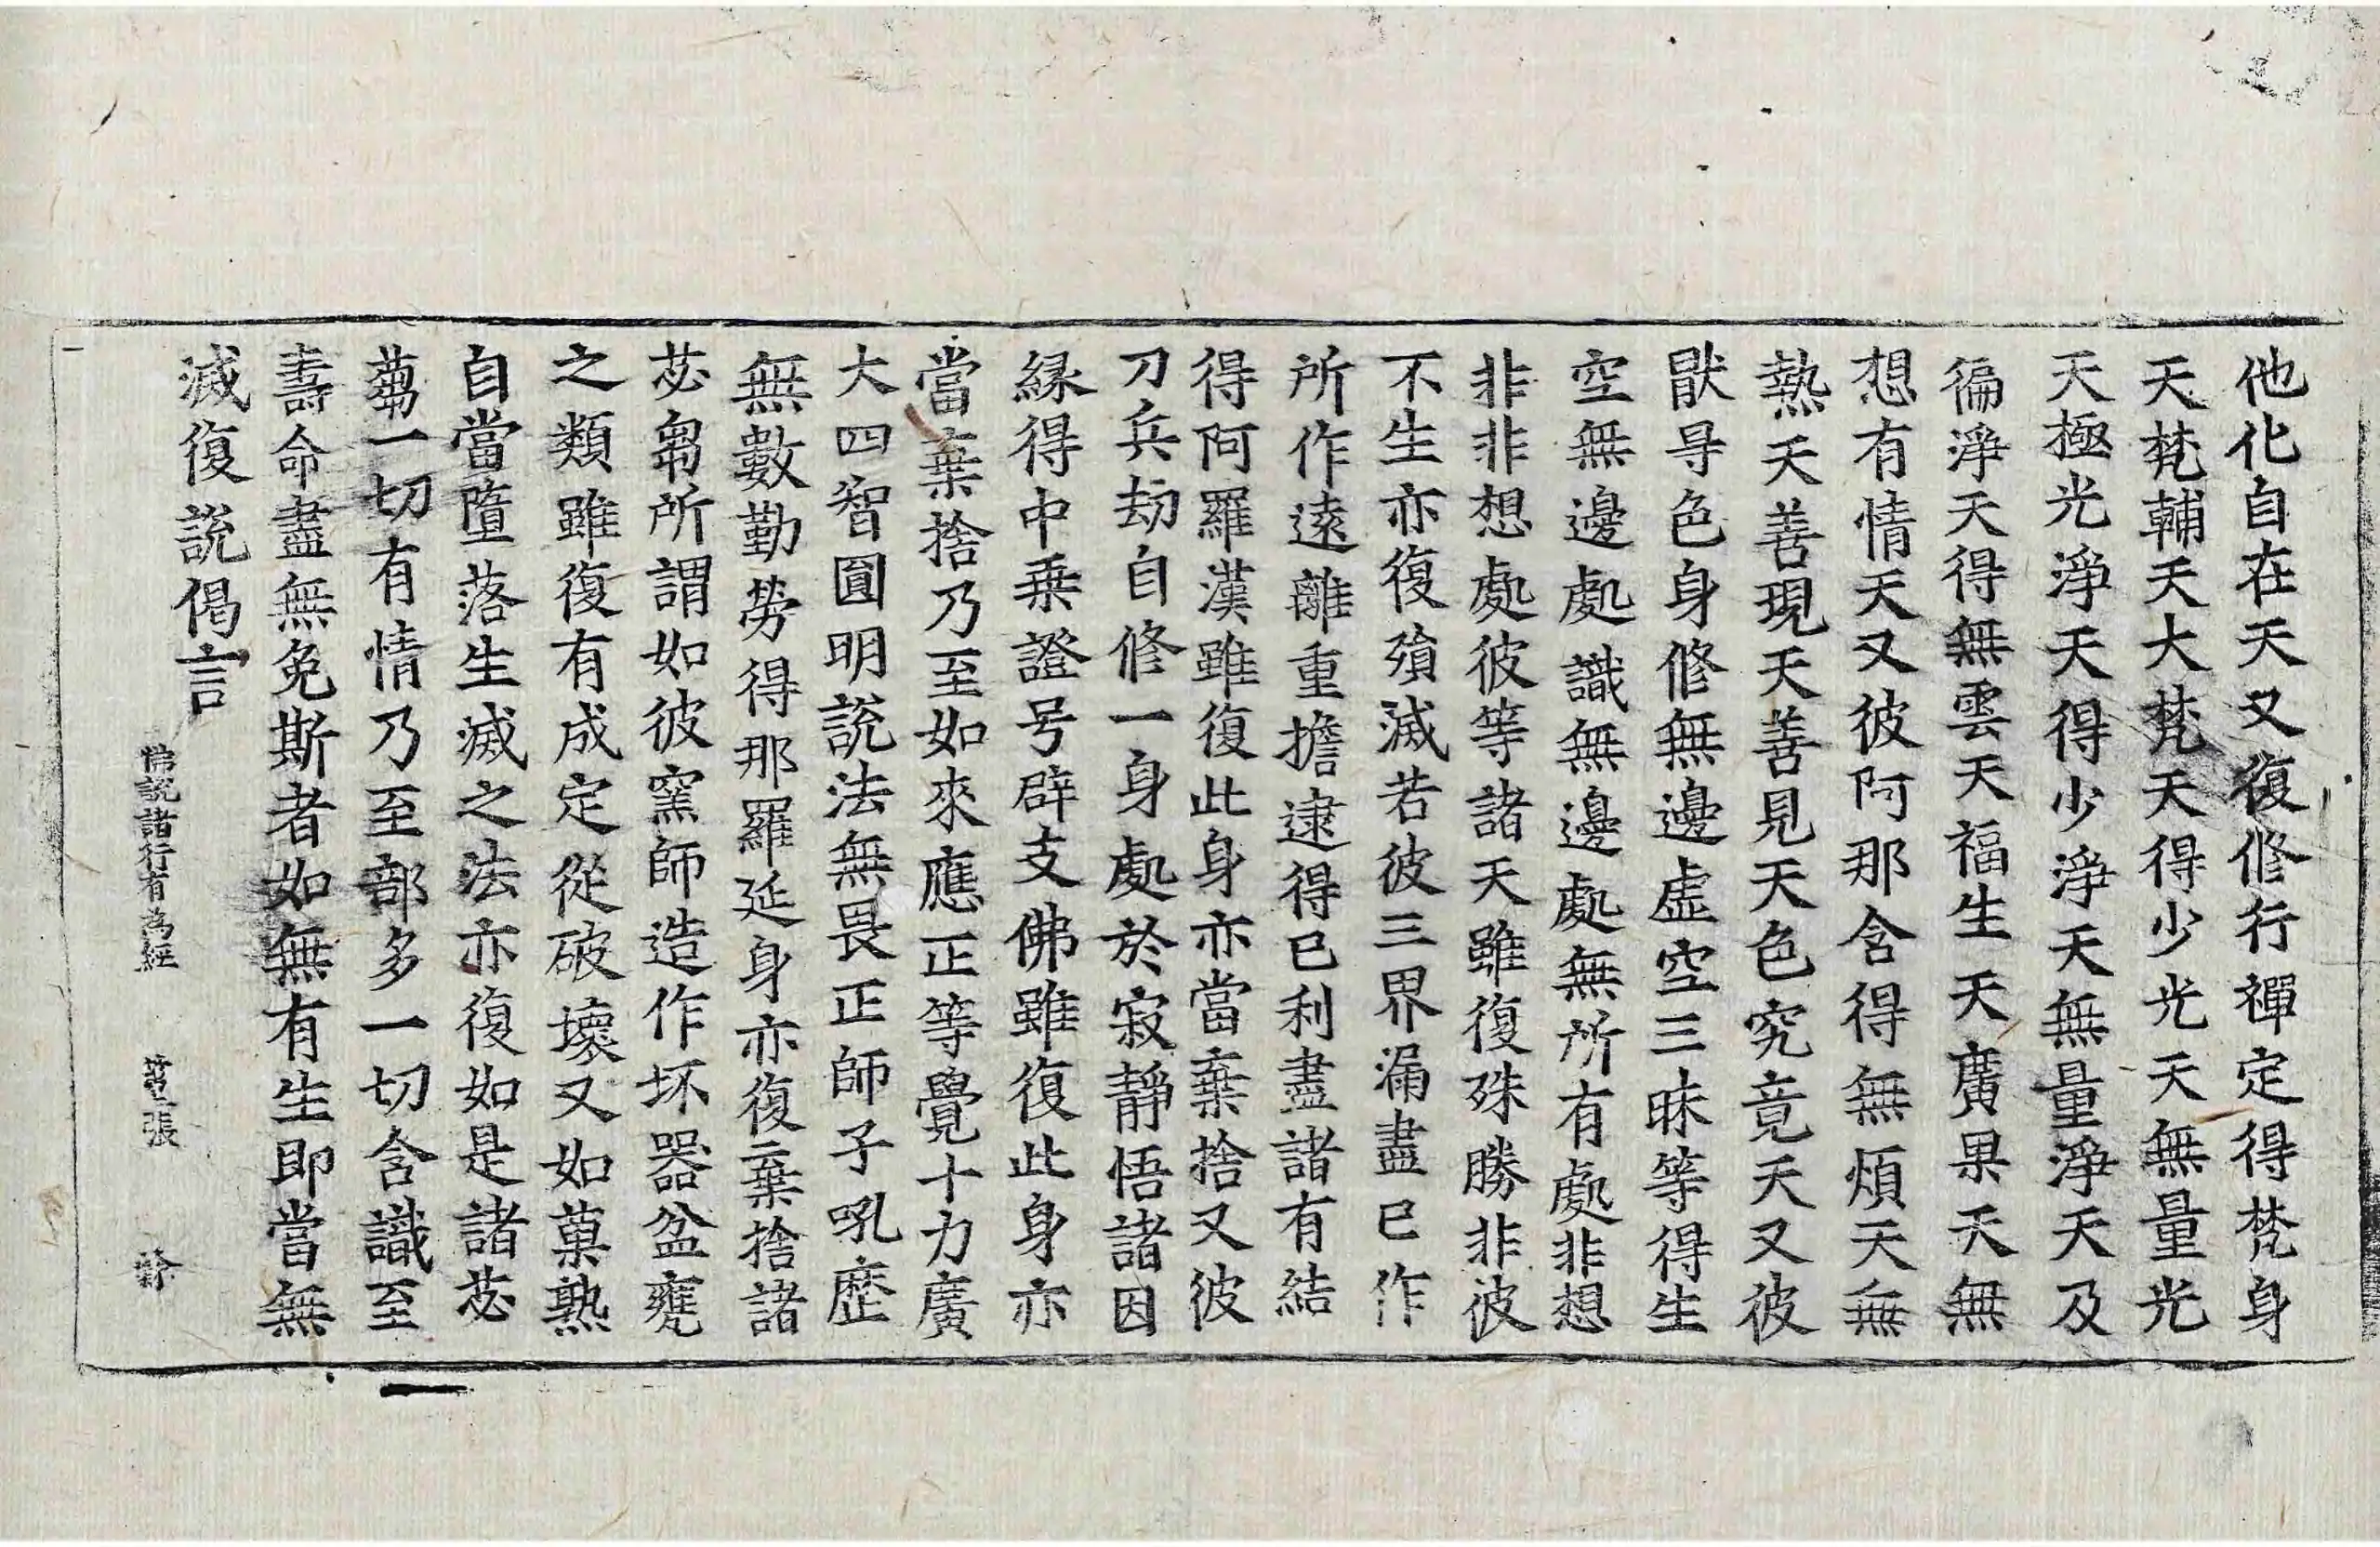 他化自在天又復修行禪定得梵身
天梵輔天大梵天得少光天無量光
天極光淨天得少淨天無量淨天及
徧淨天得無雲天福生天廣果天無
想有情天又彼阿那含得無煩天無
熱天善現天善見天色究竟天又彼
猒㝵色身修無邊虛空三昧等得生
空無邊處識無邊處無所有處非想
非非想處彼等諸天雖復殊勝非彼
不生亦復殞滅若彼三界漏盡已作
所作遠離重擔逮得已利盡諸有結
得阿羅漢雖復此身亦當棄捨又彼
刀兵劫自修一身處於寂靜悟諸因
緣得中乗證号辟支佛雖復此身亦
當棄捨乃至如來應正等覺十力廣
大四智圓明說法無畏正師子吼歷
無數勤勞得那羅延身亦復棄捨諸
苾芻所謂如彼窯師造作坏器盆甕
之類雖復有成定從破壞又如菓熟
自當墮落生滅之法亦復如是諸苾
蒭一切有情乃至部多一切含識至
壽命盡無免斯者如無有生即當無
滅復說偈言
佛說諸行有為經 張 徐